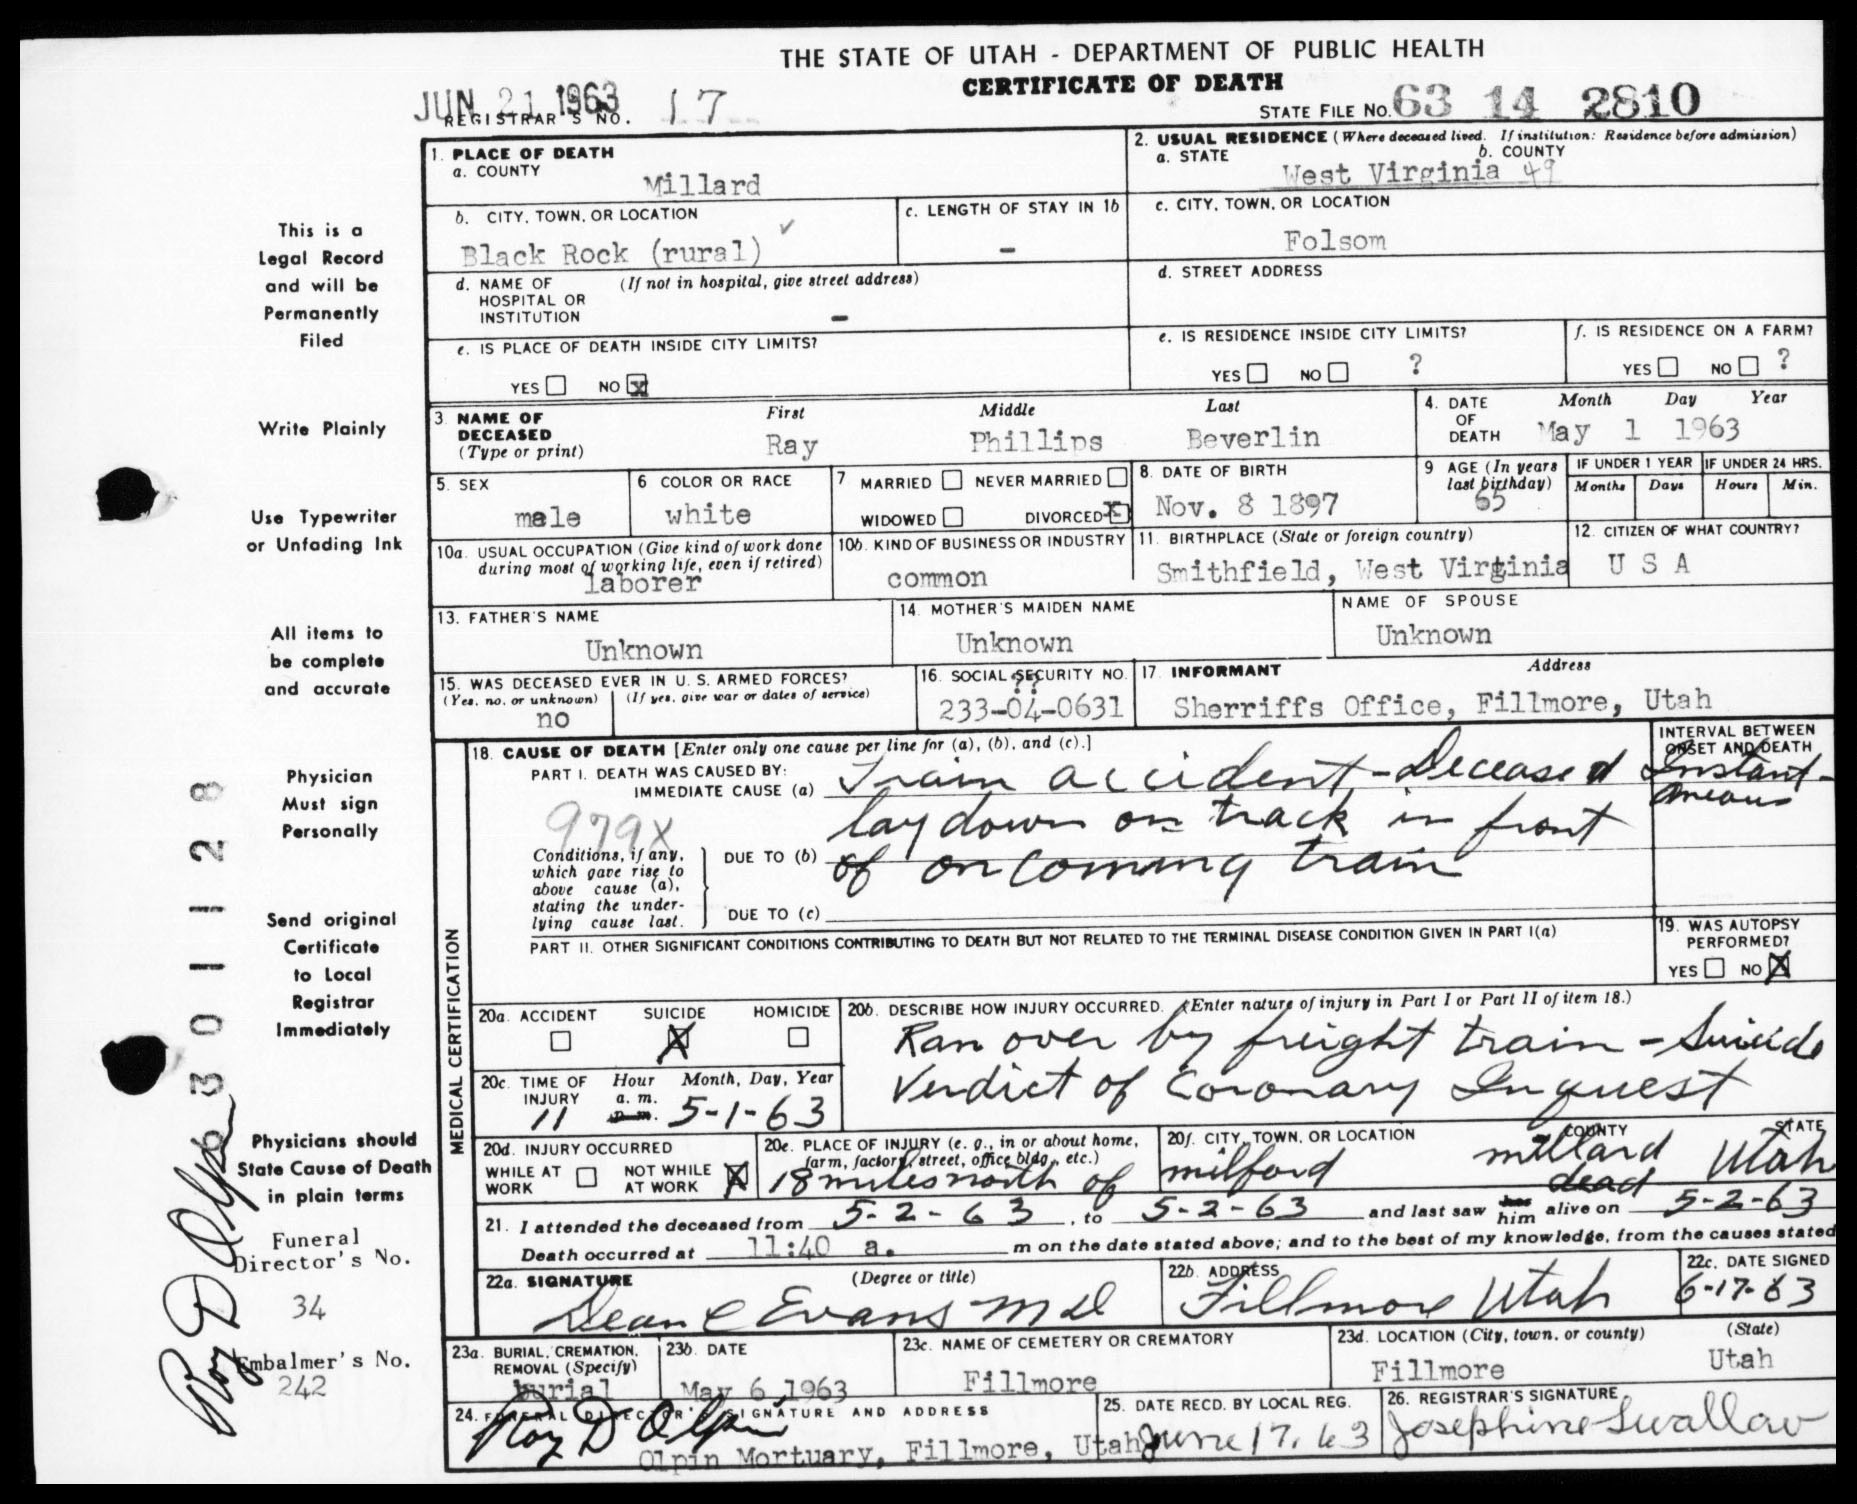 THE STATE OF UTAH - DEPARTMENT OF PUBLIC HEALTH
CERTIFICATE OF DEATH
JUN 21 1963
REGISTRAR'S NO. 17
STATE FILE NO. 63 14 2810
1. PLACE OF DEATH
a. COUNTY
Millard
2. USUAL RESIDENCE (Where deceased lived. If institution: Residence before admission)
a. STATE
b. COUNTY
West Virginia 49
b. CITY, TOWN, OR LOCATION
Black Rock (rural) ✓
c. LENGTH OF STAY IN 1b
-
c. CITY, TOWN, OR LOCATION
Folsom
d. NAME OF HOSPITAL OR INSTITUTION
(If not in hospital, give street address)
-
d. STREET ADDRESS
e. IS PLACE OF DEATH INSIDE CITY LIMITS?
YES NO X
e. IS RESIDENCE INSIDE CITY LIMITS?
YES NO ?
f. IS RESIDENCE ON A FARM?
YES NO ?
3. NAME OF DECEASED
(Type or print)
First Middle Last
Ray Phillips Beverlin
4. DATE OF DEATH
Month Day Year
May 1 1963
5. SEX
male
6 COLOR OR RACE
white
7 MARRIED NEVER MARRIED
WIDOWED DIVORCED X
8. DATE OF BIRTH
Nov. 8 1897
9 AGE (In years last birthday)
65
IF UNDER 1 YEAR
Months Days
IF UNDER 24 HRS.
Hours Min.
10a. USUAL OCCUPATION (Give kind of work done during most of working life, even if retired)
laborer
10b. KIND OF BUSINESS OR INDUSTRY
common
11. BIRTHPLACE (State or foreign country)
Smithfield, West Virginia
12. CITIZEN OF WHAT COUNTRY?
U S A
13. FATHER'S NAME
Unknown
14. MOTHER'S MAIDEN NAME
Unknown
NAME OF SPOUSE
Unknown
15. WAS DECEASED EVER IN U. S. ARMED FORCES?
(Yes, no, or unknown) (If yes, give war or dates of service)
no
16. SOCIAL SECURITY NO.
??
233-04-0631
17. INFORMANT Address
Sherriffs Office, Fillmore, Utah
MEDICAL CERTIFICATION
18. CAUSE OF DEATH [Enter only one cause per line for (a), (b), and (c).]
PART I. DEATH WAS CAUSED BY:
IMMEDIATE CAUSE (a) Train accident - Deceased
lay down on track in front
979X
Conditions, if any, which gave rise to above cause (a), stating the under-lying cause last.
DUE TO (b) of oncoming train
DUE TO (c)
INTERVAL BETWEEN ONSET AND DEATH
Instant-
aneous
PART II. OTHER SIGNIFICANT CONDITIONS CONTRIBUTING TO DEATH BUT NOT RELATED TO THE TERMINAL DISEASE CONDITION GIVEN IN PART I(a)
19. WAS AUTOPSY PERFORMED?
YES NO X
20a. ACCIDENT SUICIDE HOMICIDE
X
20b. DESCRIBE HOW INJURY OCCURRED. (Enter nature of injury in Part I or Part II of item 18.)
Ran over by freight train - Suicide
Verdict of Coronary Inquest
20c. TIME OF INJURY
Hour Month, Day, Year
a. m.
p. m.
11 5-1-63
20d. INJURY OCCURRED
WHILE AT WORK NOT WHILE AT WORK X
20e. PLACE OF INJURY (e. g., in or about home, farm, factory, street, office bldg., etc.)
18 miles north of
20f. CITY, TOWN, OR LOCATION COUNTY STATE
Milford Millard Utah
21. I attended the deceased from 5-2-63, to 5-2-63 and last saw her him alive on 5-2-63
dead
Death occurred at 11:40 a. m on the date stated above; and to the best of my knowledge, from the causes stated
22a. SIGNATURE (Degree or title)
Dean C Evans MD
22b. ADDRESS
Fillmore Utah
22c. DATE SIGNED
6-17-63
23a. BURIAL, CREMATION, REMOVAL (Specify)
burial
23b. DATE
May 6, 1963
23c. NAME OF CEMETERY OR CREMATORY
Fillmore
23d. LOCATION (City, town, or county) (State)
Fillmore Utah
24. FUNERAL DIRECTOR'S SIGNATURE AND ADDRESS
Roy D Olpin
Olpin Mortuary, Fillmore, Utah
25. DATE RECD. BY LOCAL REG.
June 17, 63
26. REGISTRAR'S SIGNATURE
Josephine Swallow
This is a
Legal Record
and will be
Permanently
Filed
Write Plainly
Use Typewriter
or Unfading Ink
All items to
be complete
and accurate
Physician
Must sign
Personally
Send original
Certificate
to Local
Registrar
Immediately
Physicians should
State Cause of Death
in plain terms
Funeral
Director's No.
34
Embalmer's No.
242
Roy D Olpin
301128